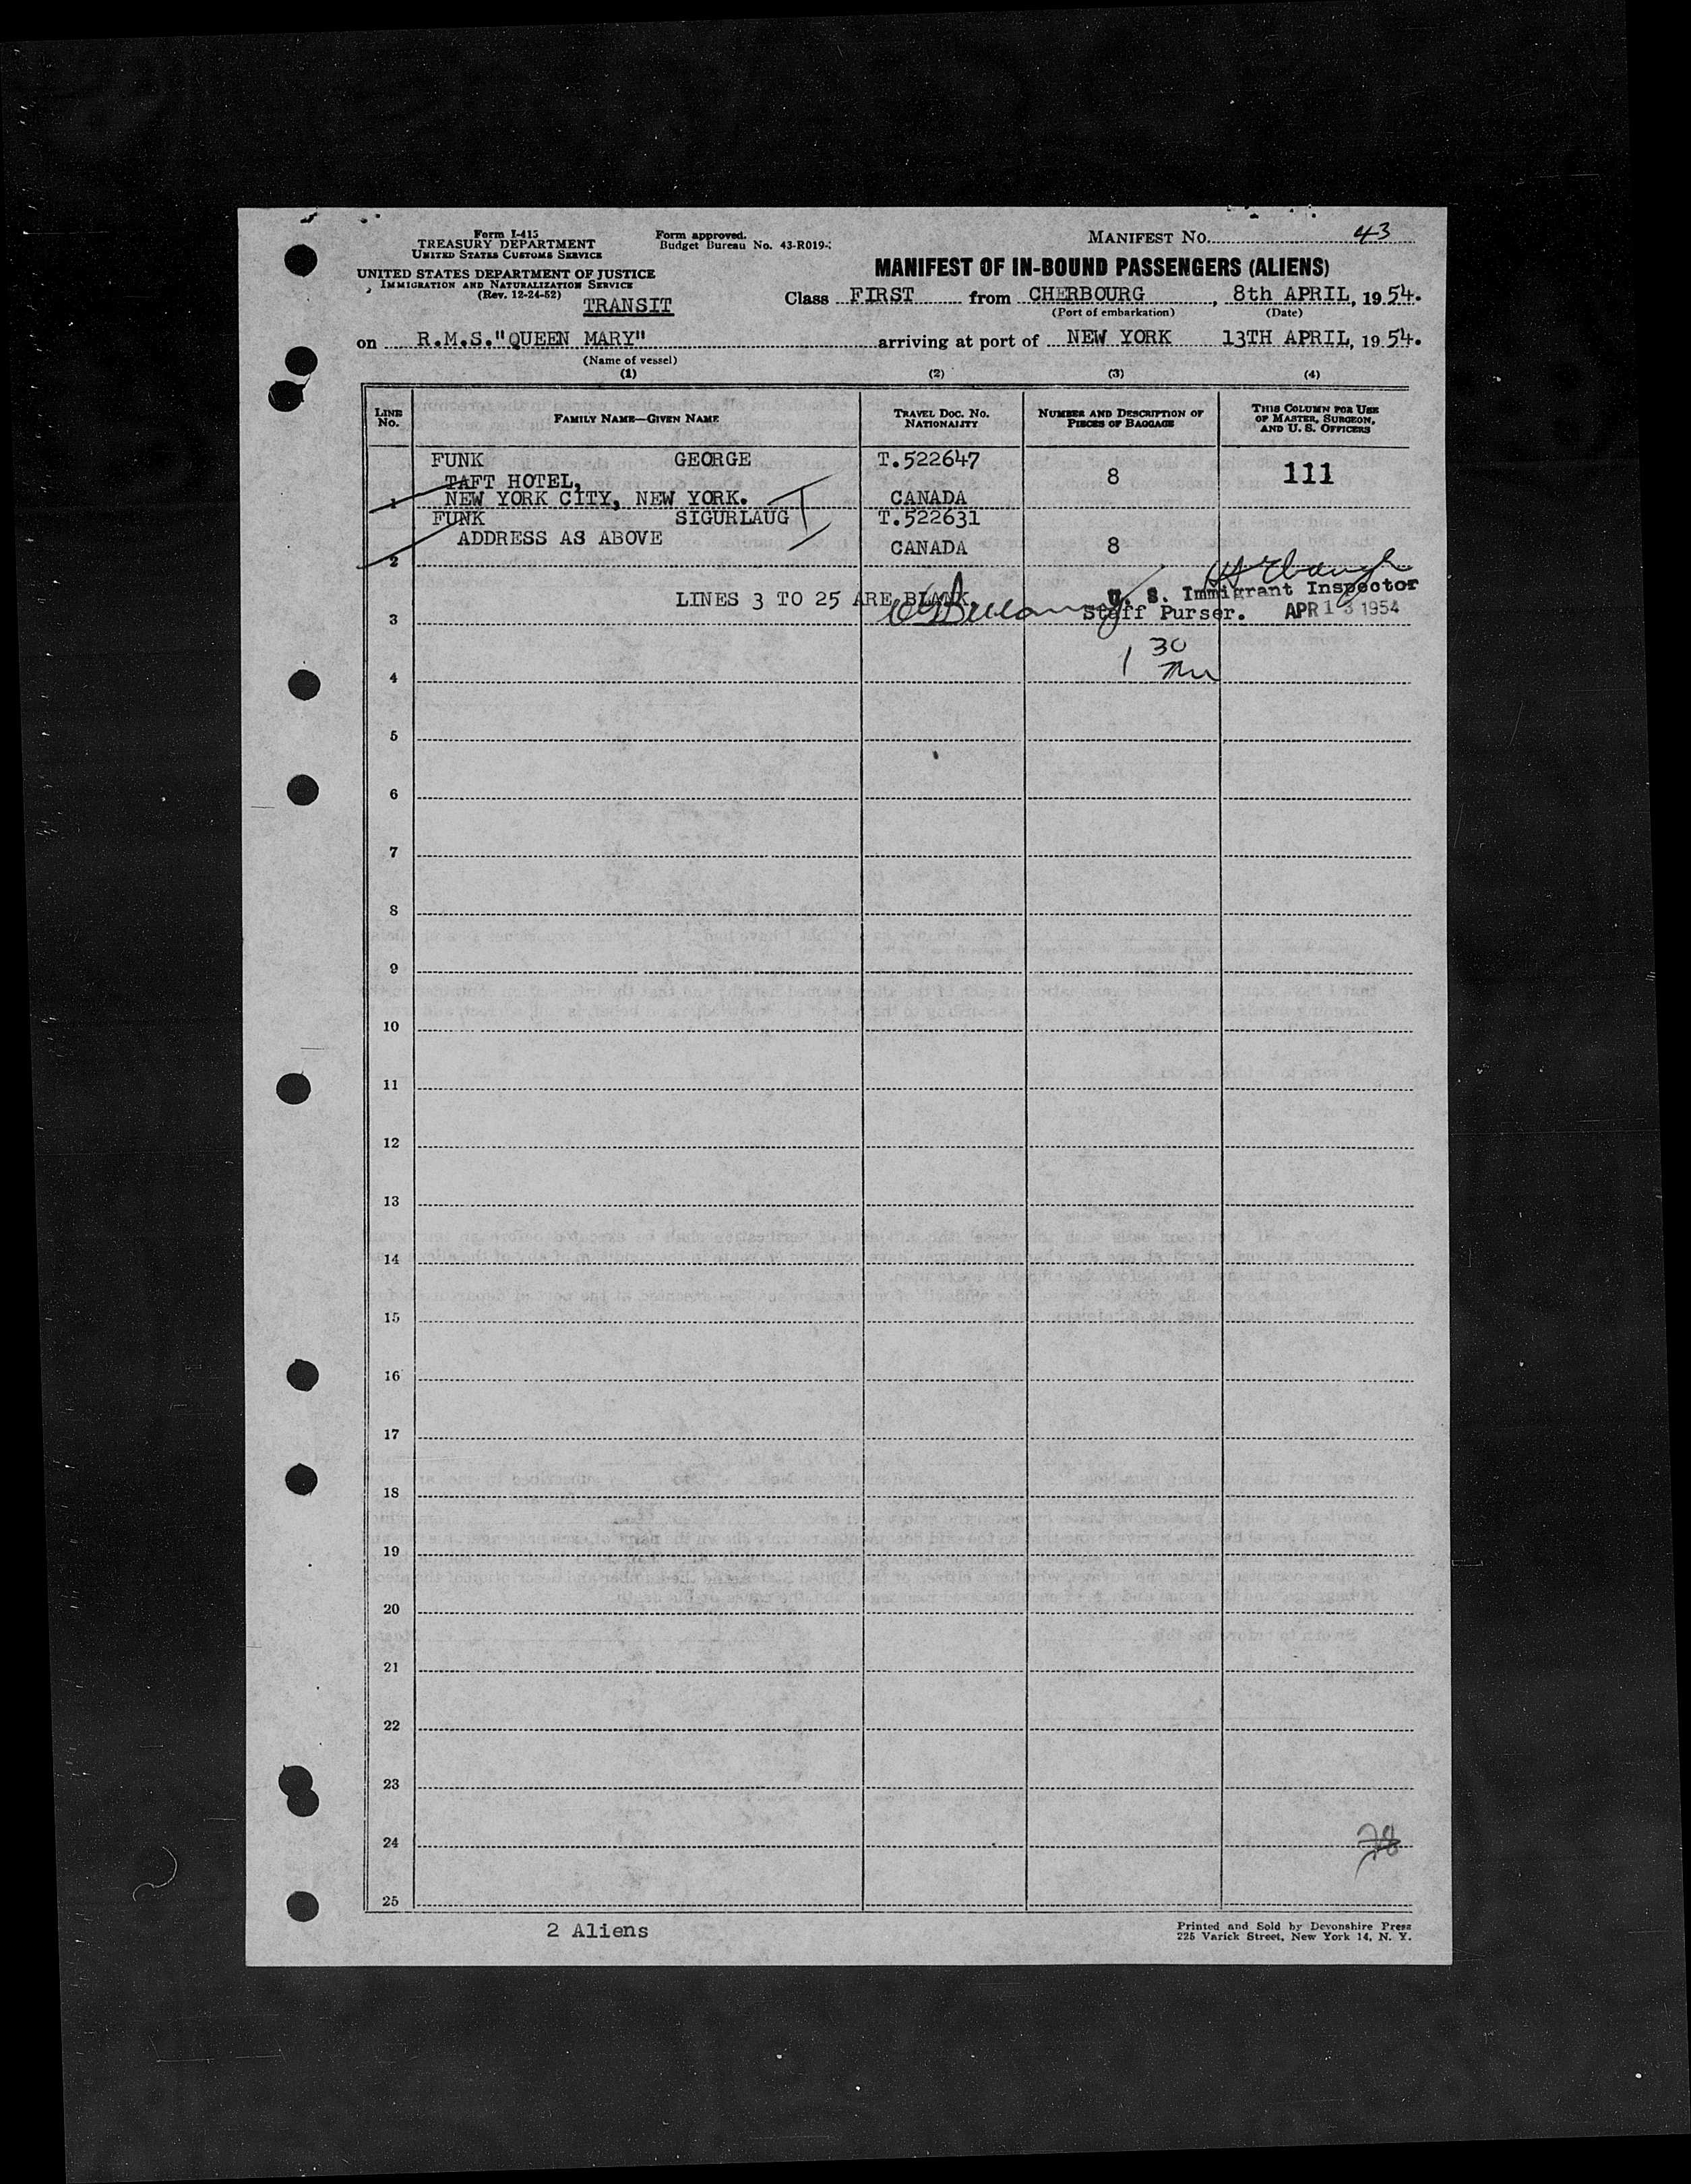 Form I-415
TREASURY DEPARTMENT
UNITED STATES CUSTOMS SERVICE
UNITED STATES DEPARTMENT OF JUSTICE
IMMIGRATION AND NATURALIZATION SERVICE
(Rev. 12-24-52)
TRANSIT
Form approved.
Budget Bureau No. 43-R019-
MANIFEST No. 43
MANIFEST OF IN-BOUND PASSENGERS (ALIENS)
Class FIRST from CHERBOURG, 8th APRIL, 1954.
(Port of embarkation) (Date)
on R.M.S."QUEEN MARY" arriving at port of NEW YORK 13TH APRIL, 1954.
(Name of vessel)
(1) (2) (3) (4)
LINE No. FAMILY NAME—GIVEN NAME TRAVEL DOC. NO. NATIONALITY NUMBER AND DESCRIPTION OF PIECES OF BAGGAGE THIS COLUMN FOR USE OF MASTER, SURGEON, AND U. S. OFFICERS
FUNK GEORGE T.522647
TAFT HOTEL, 8 111
1 NEW YORK CITY, NEW YORK. CANADA
FUNK SIGURLAUG T.522631
ADDRESS AS ABOVE CANADA 8
2
LINES 3 TO 25 ARE BLANK. U. S. Immigrant Inspector
3 Staff Purser. APR 13 1954
1 30
4
5
6
7
8
9
10
11
12
13
14
15
16
17
18
19
20
21
22
23
24 28
25
2 Aliens
Printed and Sold by Devonshire Press
225 Varick Street, New York 14, N. Y.